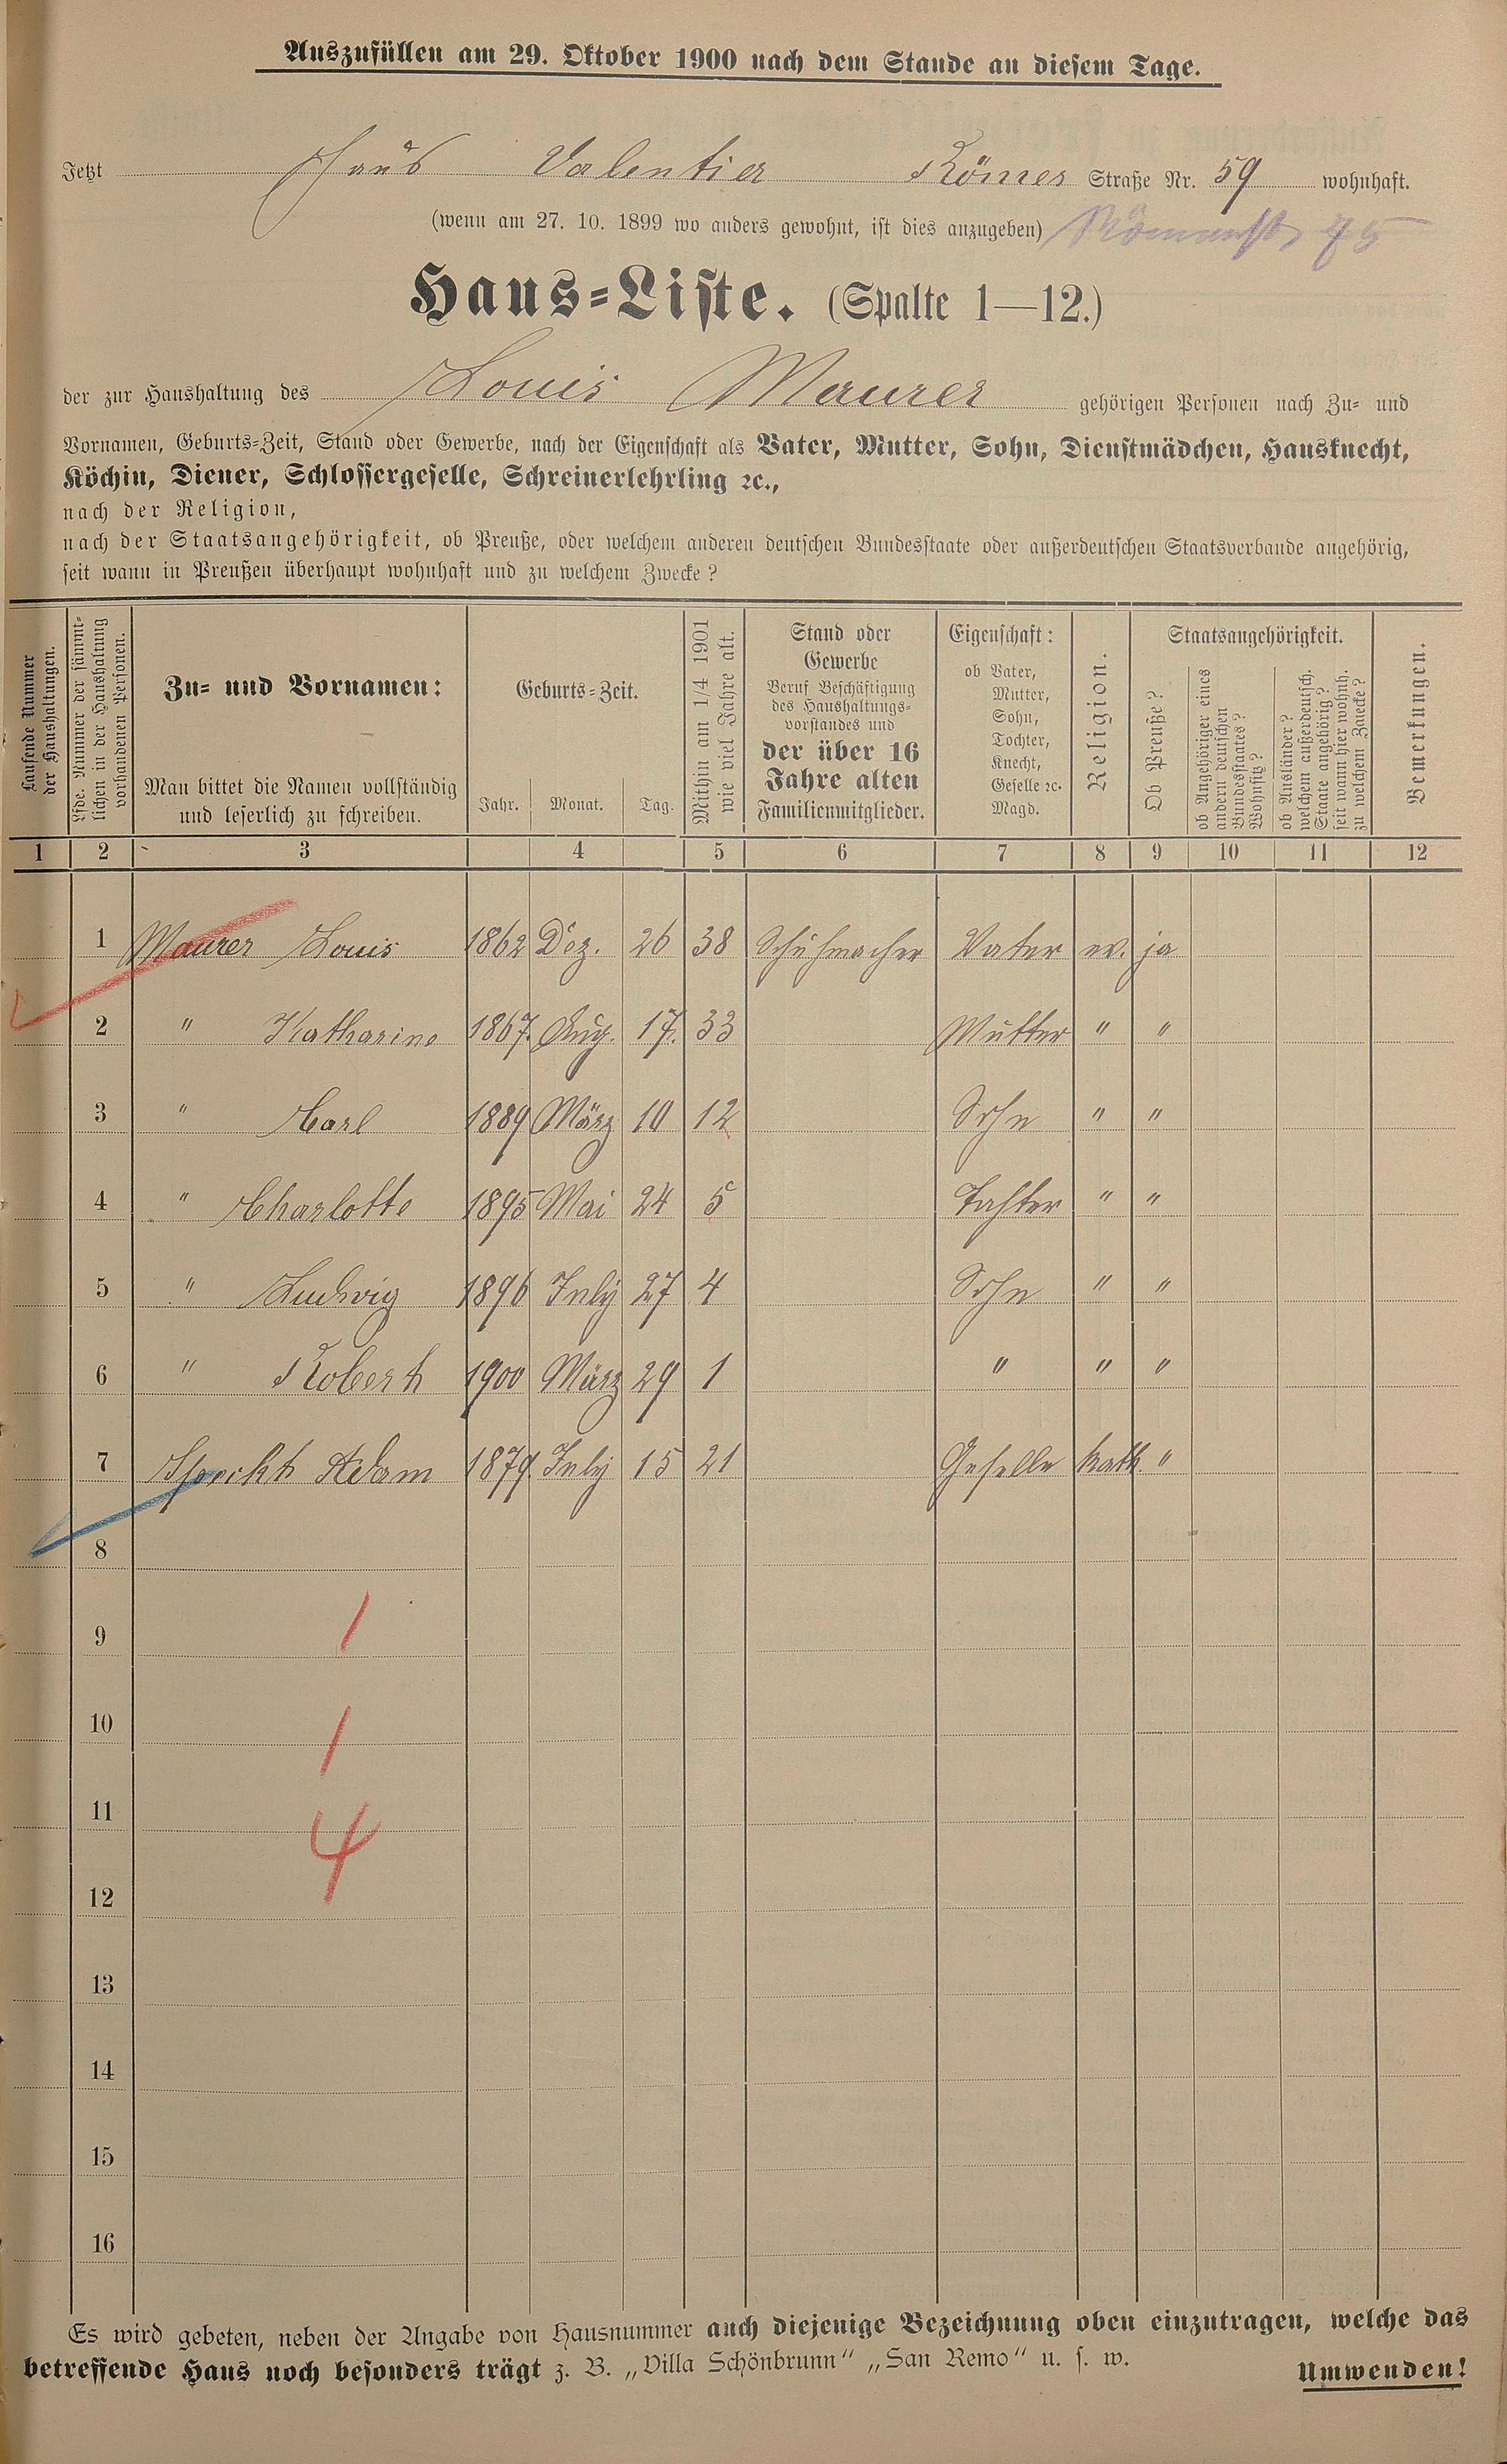 Auszufüllen am 29. Oktober 1900 nach dem Stande an diesem Tage.
Jetzt Haus Valentier Römer Straße Nr. 59 wohnhaft.
(wenn am 27. 10. 1899 wo anders gewohnt, ist dies anzugeben) Römerstr. 75
Haus=Liste. (Spalte 1—12.)
der zur Haushaltung des Louis Maurer gehörigen Personen nach Zu= und
Vornamen, Geburts=Zeit, Stand oder Gewerbe, nach der Eigenschaft als Vater, Mutter, Sohn, Dienstmädchen, Hausknecht,
Köchin, Diener, Schlossergeselle, Schreinerlehrling ꝛc.,
nach der Religion,
nach der Staatsangehörigkeit, ob Preuße, oder welchem anderen deutschen Bundesstaate oder außerdeutschen Staatsverbande angehörig,
seit wann in Preußen überhaupt wohnhaft und zu welchem Zwecke?
Laufende Nummer
der Haushaltungen.
Lfde. Nummer der sämmt-
lichen in der Haushaltung
vorhandenen Personen.
Zu= und Vornamen:
Man bittet die Namen vollständig
und leserlich zu schreiben.
Geburts=Zeit.
Jahr. Monat. Tag.
Mithin am 1/4 1901
wie viel Jahre alt.
Stand oder
Gewerbe
Beruf Beschäftigung
des Haushaltungs=
vorstandes und
der über 16
Jahre alten
Familienmitglieder.
Eigenschaft:
ob Vater,
Mutter,
Sohn,
Tochter,
Knecht,
Geselle ꝛc.
Magd.
Religion.
Staatsangehörigkeit.
Ob Preuße?
ob Angehöriger eines
andern deutschen
Bundesstaates?
Wohnsitz?
ob Ausländer?
welchem außerdeutsch.
Staate angehörig?
seit wann hier wohnh.
zu welchem Zwecke?
Bemerkungen.
1 2 3 4 5 6 7 8 9 10 11 12
1 Maurer Louis 1862 Dez. 26 38 Schuhmacher Vater ev. ja
2 " Katharine 1867. Aug. 17. 33 Mutter " "
3 " Carl 1889 März 10 12 Sohn " "
4 " Charlotte 1895 Mai 24 5 Tochter " "
5 " Ludwig 1896 July 27 4 Sohn " "
6 " Robert 1900 März 29 1 " " "
7 Specht Adam 1879. July 15 21 Geselle kath. "
8
9 1
10 1
11 4
12
13
14
15
16
Es wird gebeten, neben der Angabe von Hausnummer auch diejenige Bezeichnung oben einzutragen, welche das
betreffende Haus noch besonders trägt z. B. „Villa Schönbrunn" „San Remo" u. s. w. Umwenden!